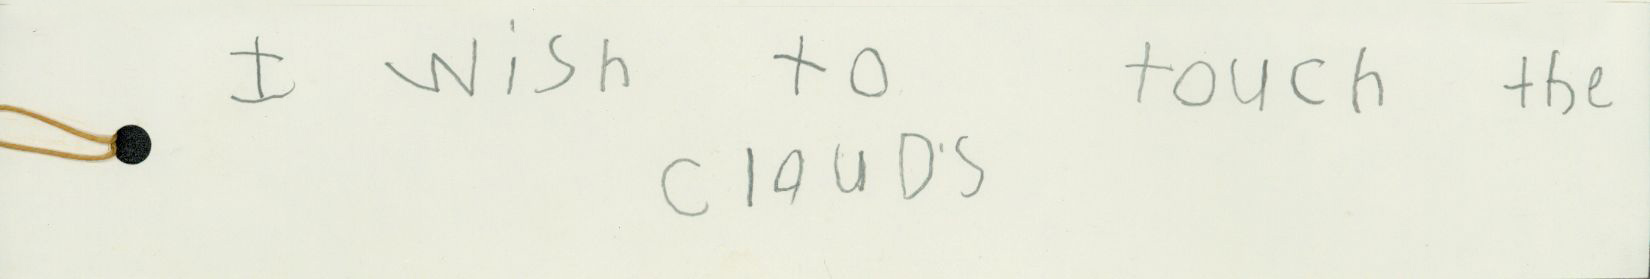 I wish to touch the
clauD's